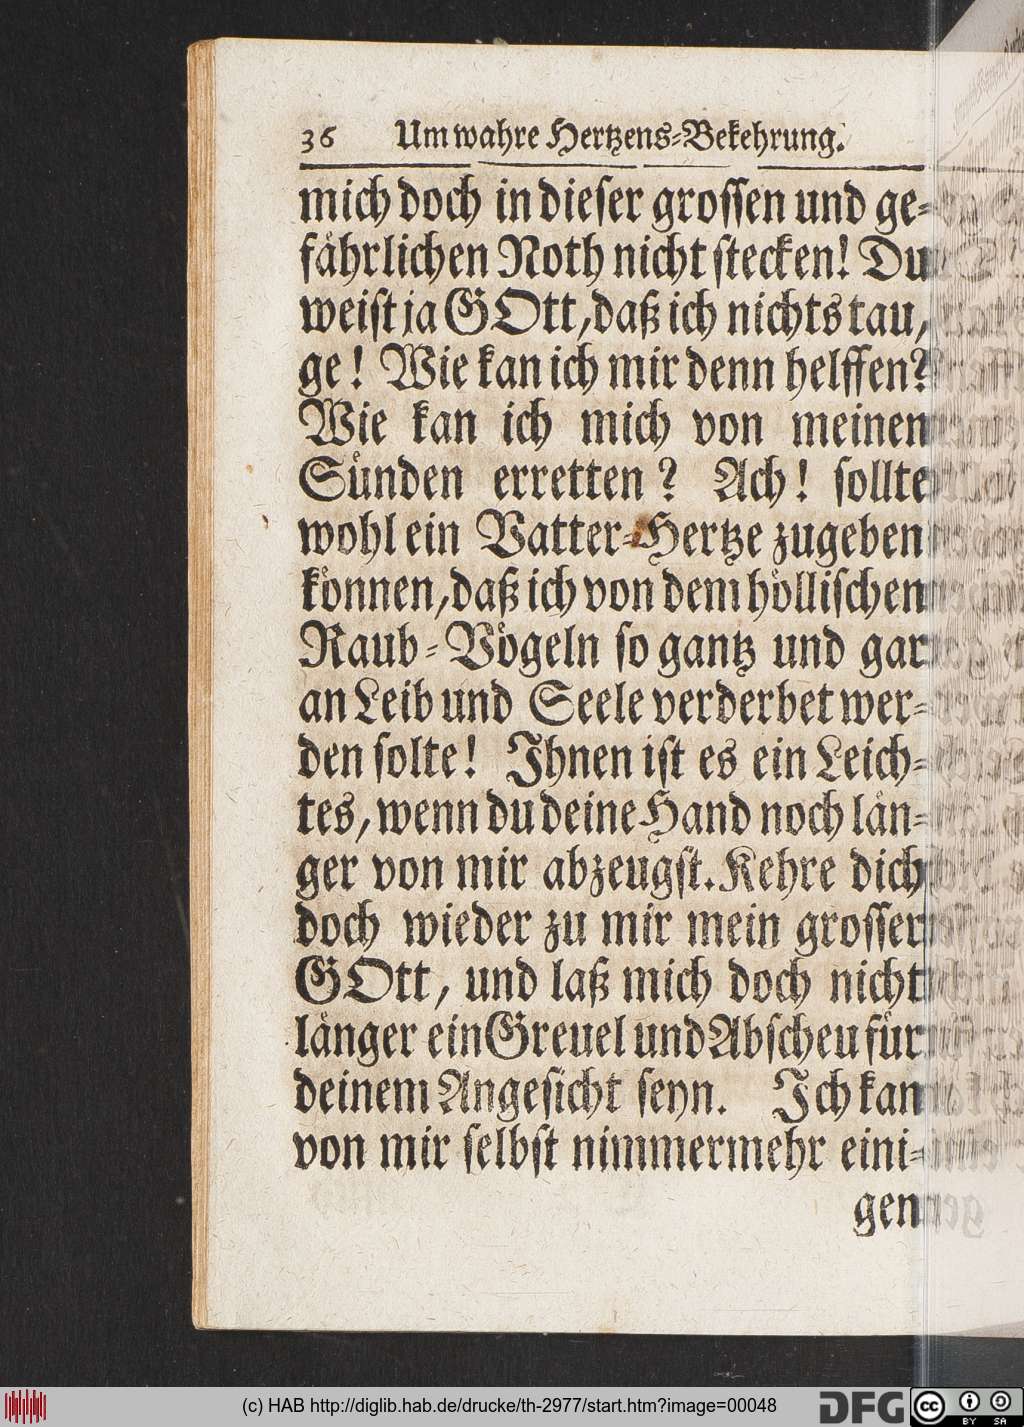 36 Um wahre Hertzens-Bekehrung.
mich doch in dieser grossen und ge-
fährlichen Noth nicht stecken! Du
weist ja GOtt, daß ich nichts tau,
ge! Wie kan ich mir denn helffen?
Wie kan ich mich von meinen
Sünden erretten? Ach! sollte
wohl ein Vatter-Hertze zugeben
können, daß ich von dem höllischen
Raub-Vögeln so gantz und gar
an Leib und Seele verderbet wer-
den solte! Ihnen ist es ein Leich-
tes, wenn du deine Hand noch län-
ger von mir abzeugst. Kehre dich
doch wieder zu mir mein grosser
GOtt, und laß mich doch nicht
länger ein Greuel und Abscheu für
deinem Angesicht seyn. Ich kan
von mir selbst nimmermehr eini-
gen
(c) HAB http://diglib.hab.de/drucke/th-2977/start.htm?image=00048
DFG
cc BY SA